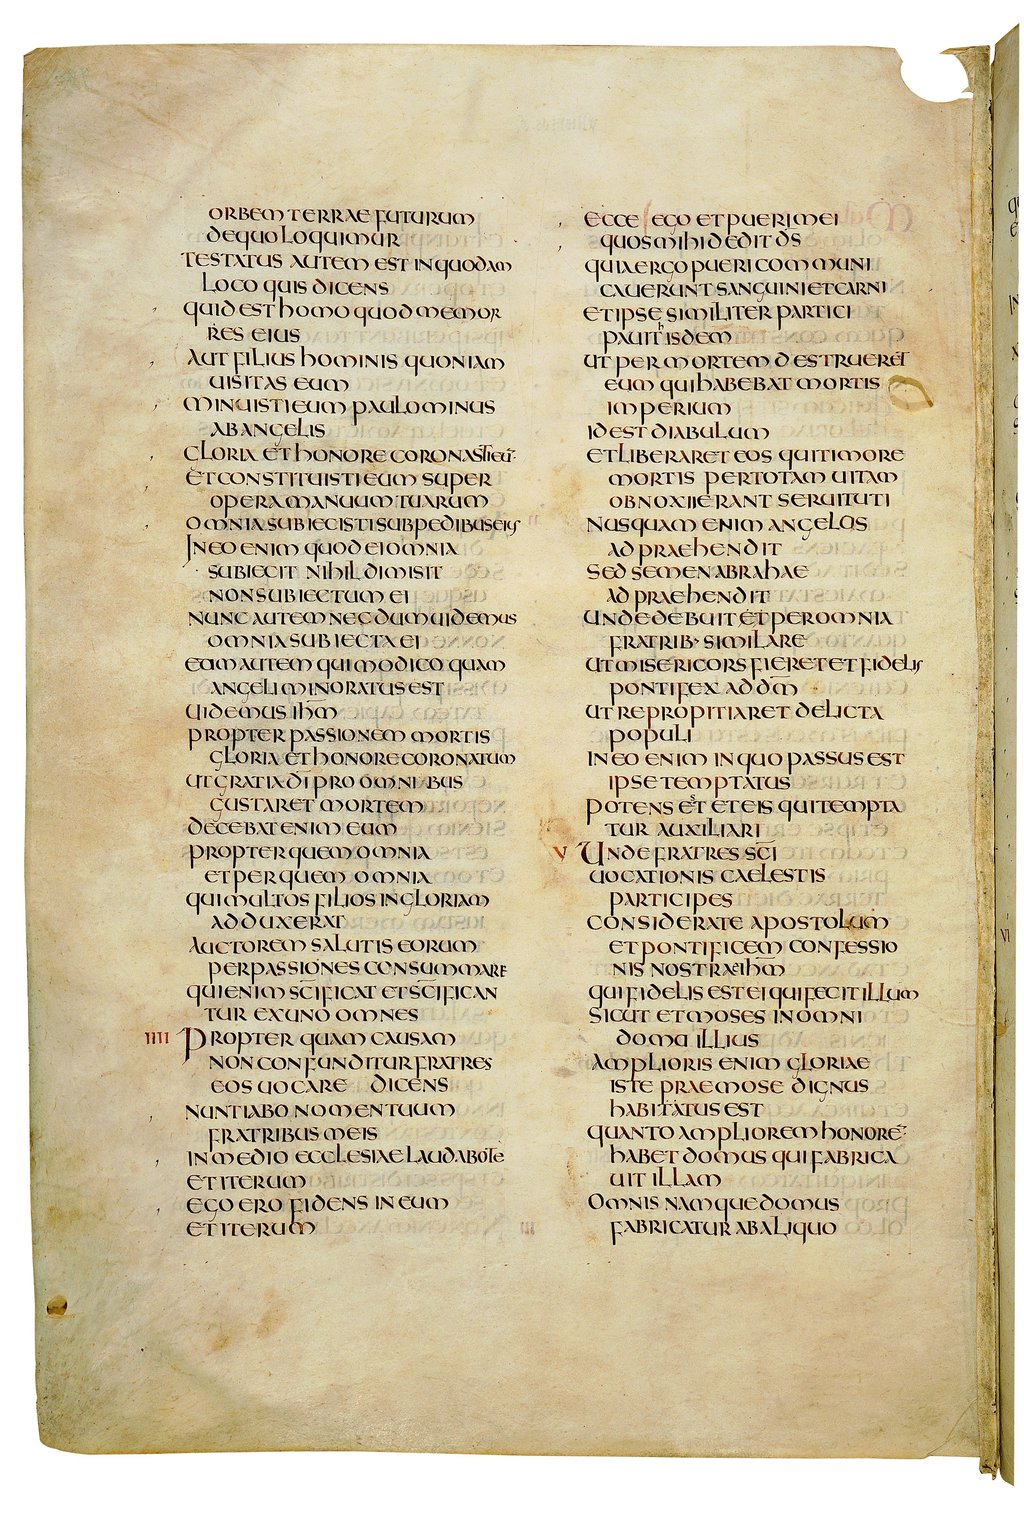 ORBEM TERRAE FUTURUM
DE QUO LOQUIMUR
TESTATUS AUTEM EST IN QUODAM
LOCO QUIS DICENS
QUID EST HOMO QUOD MEMOR
RES EIUS
AUT FILIUS HOMINIS QUONIAM
UISITAS EUM
MINUISTI EUM PAULO MINUS
AB ANGELIS
GLORIA ET HONORE CORONASTI EŪ
ET CONSTITUISTI EUM SUPER
OPERA MANUUM TUARUM
OMNIA SUBIECISTI SUB PEDIBUS EIUS
IN EO ENIM QUOD EI OMNIA
SUBIECIT NIHIL DIMISIT
NON SUBIECTUM EI
NUNC AUTEM NEC DUM UIDEMUS
OMNIA SUBIECTA EI
EUM AUTEM QUI MODICO QUAM
ANGELI MINORATUS EST
UIDEMUS IH̄M
PROPTER PASSIONEM MORTIS
GLORIA ET HONORE CORONATUM
UT GRATIA DĪ PRO OMNIBUS
GUSTARET MORTEM
DECEBAT ENIM EUM
PROPTER QUEM OMNIA
ET PER QUEM OMNIA
QUI MULTOS FILIOS IN GLORIAM
ADDUXERAT
AUCTOREM SALUTIS EORUM
PER PASSIONES CONSUMMARE
QUI ENIM SC̄IFICAT ET SC̄IFICAN
TUR EX UNO OMNES
IIII PROPTER QUAM CAUSAM
NON CONFUNDITUR FRATRES
EOS UOCARE DICENS
NUNTIABO NOMEN TUUM
FRATRIBUS MEIS
IN MEDIO ECCLESIAE LAUDABO TE
ET ITERUM
EGO ERO FIDENS IN EUM
ET ITERUM
ECCE EGO ET PUERI MEI
QUOS MIHI DEDIT D̄S
QUIA ERGO PUERI COMMUNI
CAUERUNT SANGUINI ET CARNI
ET IPSE SIMILITER PARTICI
PAUIT HISDEM
UT PER MORTEM DESTRUERET
EUM QUI HABEBAT MORTIS
IMPERIUM
ID EST DIABULUM
ET LIBERARET EOS QUI TIMORE
MORTIS PER TOTAM UITAM
OBNOXII ERANT SERUITUTI
NUSQUAM ENIM ANGELOS
ADPRAEHENDIT
SED SEMEN ABRAHAE
ADPRAEHENDIT
UNDE DEBUIT ET PER OMNIA
FRATRIB· SIMILARE
UT MISERICORS FIERET ET FIDELIS
PONTIFEX AD DM̄
UT REPROPITIARET DELICTA
POPULI
IN EO ENIM IN QUO PASSUS EST
IPSE TEMPTATUS
POTENS EST ET EIS QUI TEMPTA
TUR AUXILIARI
V UNDE FRATRES SC̄I
UOCATIONIS CAELESTIS
PARTICIPES
CONSIDERATE APOSTOLUM
ET PONTIFICEM CONFESSIO
NIS NOSTRAE IH̄M
QUI FIDELIS EST EI QUI FECIT ILLUM
SICUT ET MOSES IN OMNI
DOMU ILLIUS
AMPLIORIS ENIM GLORIAE
ISTE PRAE MOSE DIGNUS
HABITATUS EST
QUANTO AMPLIOREM HONORĒ
HABET DOMUS QUI FABRICA
UIT ILLAM
OMNIS NAMQUE DOMUS
FABRICATUR AB ALIQUO